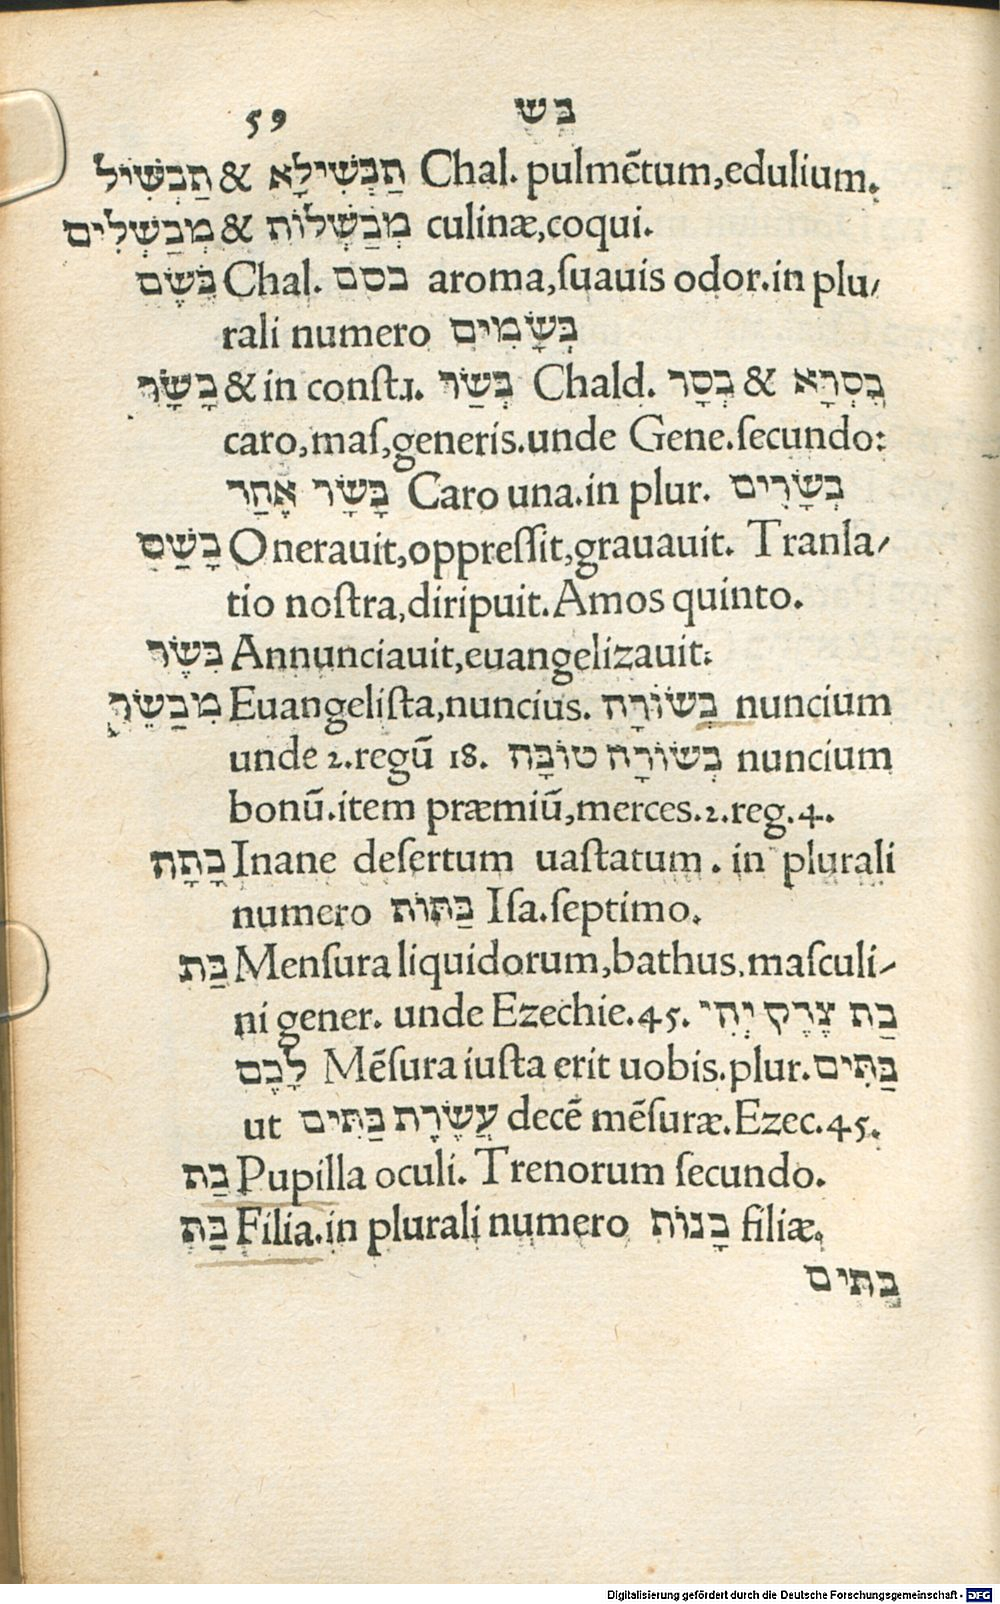 59 בש
תַבְשִׁיל & תַבְשִׁילָא Chal. pulmẽtum,edulium.
מְבַשְׁלִים & מְבַשְׁלוֹת culinæ,coqui.
בֹּשֶׂם Chal. בסם aroma,ſuauis odor.in plu/
rali numero בְּשָׂמִים
בָּשָׂר & in conſtr. בְּשַׂר Chald. בְּסָר & בִּסְרָא
caro,maſ,generis.unde Gene.ſecundo:
בָּשָׂר אֶחָד Caro una.in plur. בְּשָׂרִים
בָּשַׁס Onerauit,oppreſſit,grauauit. Tranſla/
tio noſtra,diripuit.Amos quinto.
בִּשֵּׂר Annunciauit,euangelizauit:
מְבַשֵּׂר Euangeliſta,nuncius. בְּשׂוֹרָה nuncium
unde 2.regũ 18. בְּשׂוֹרָה טוֹבָה nuncium
bonũ.item præmiũ,merces.2.reg.4.
בָּתָה Inane deſertum uaſtatum. in plurali
numero בַּתּוֹת Iſa.ſeptimo.
בַּת Menſura liquidorum,bathus.maſculi/
ni gener. unde Ezechie.45. בַּת צֶדֶק יְהִי
לָכֶם Mẽſura iuſta erit uobis.plur. בַּתִּים
ut עֲשֶׂרֶת בַּתִּים decẽ mẽſuræ.Ezec.45.
בַּת Pupilla oculi. Trenorum ſecundo.
בַּת Filia.in plurali numero בָּנוֹת filiæ.
בַּתִּים
Digitalisierung gefördert durch die Deutsche Forschungsgemeinschaft - DFG